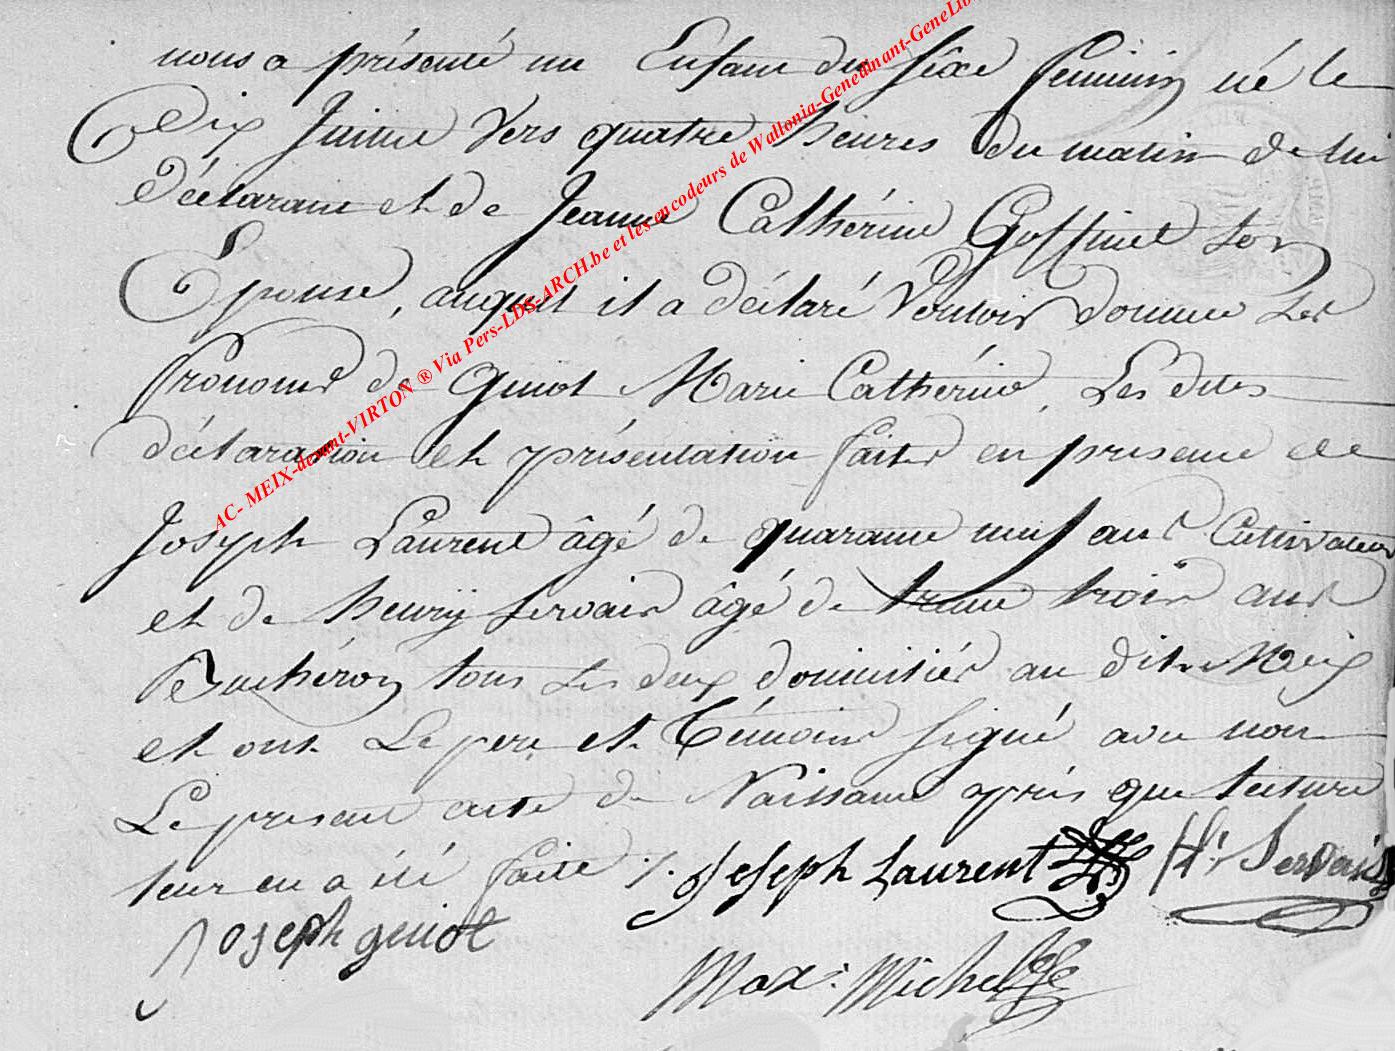 nous a présenté un Enfant du sèxe feminin né le
dix Juin Vers quatre heures du matin de lui
Déclarant et de Jeanne Cathérine Goffinet Son
Epouse, auquel il a déclaré Vouloir donner Les
Pronoms de Guiot Marie Cathérine, Les dites
déclaration et présentation faites en presence de
Joseph Laurent âgé de quarante neuf ans Cultivateur
et de henry servais âgé de trente trois ans
Bucheron tous Les deux domicilies au dit Meix
et ont Le pere et Témoins signé avec nous
Le present acte de Naissance après que lecture
leur en a été faite ./.
Joseph Laurent H. Servais
Joseph guiot
Max: Michel
AC- MEIX-devant-VIRTON ® Via Pers-LDS-ARCH.be et les encodeurs de Wallonia-Genedinant-GeneLib